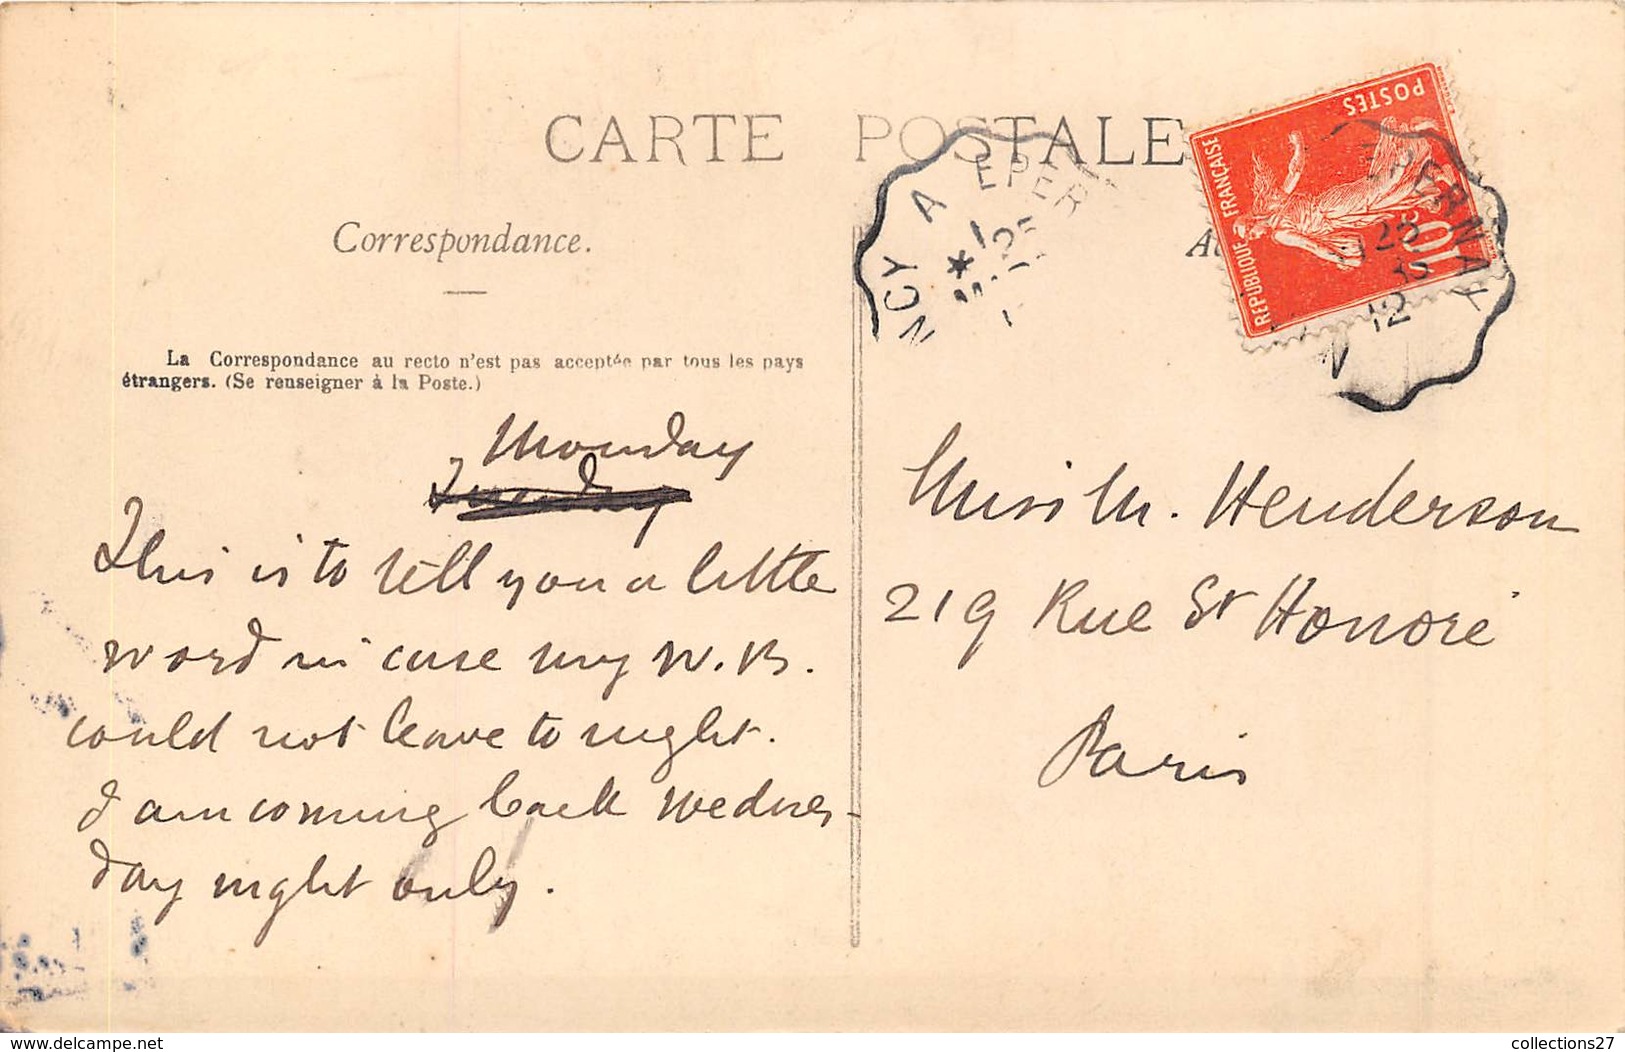 CARTE POSTALE
Correspondance.
La Correspondance au recto n'est pas acceptée par tous les pays
étrangers. (Se renseigner à la Poste.)
Monday
Tuesday
This is to tell you a little
word in case my W.B.
could not leave to night.
I am coming back Wednes-
day night only.
NCY A EPER
REPUBLIQUE FRANÇAISE
POSTES
10c
EPERNAY
25
12
Miss M. Henderson
219 Rue St Honoré
Paris
collections27
www.delcampe.net